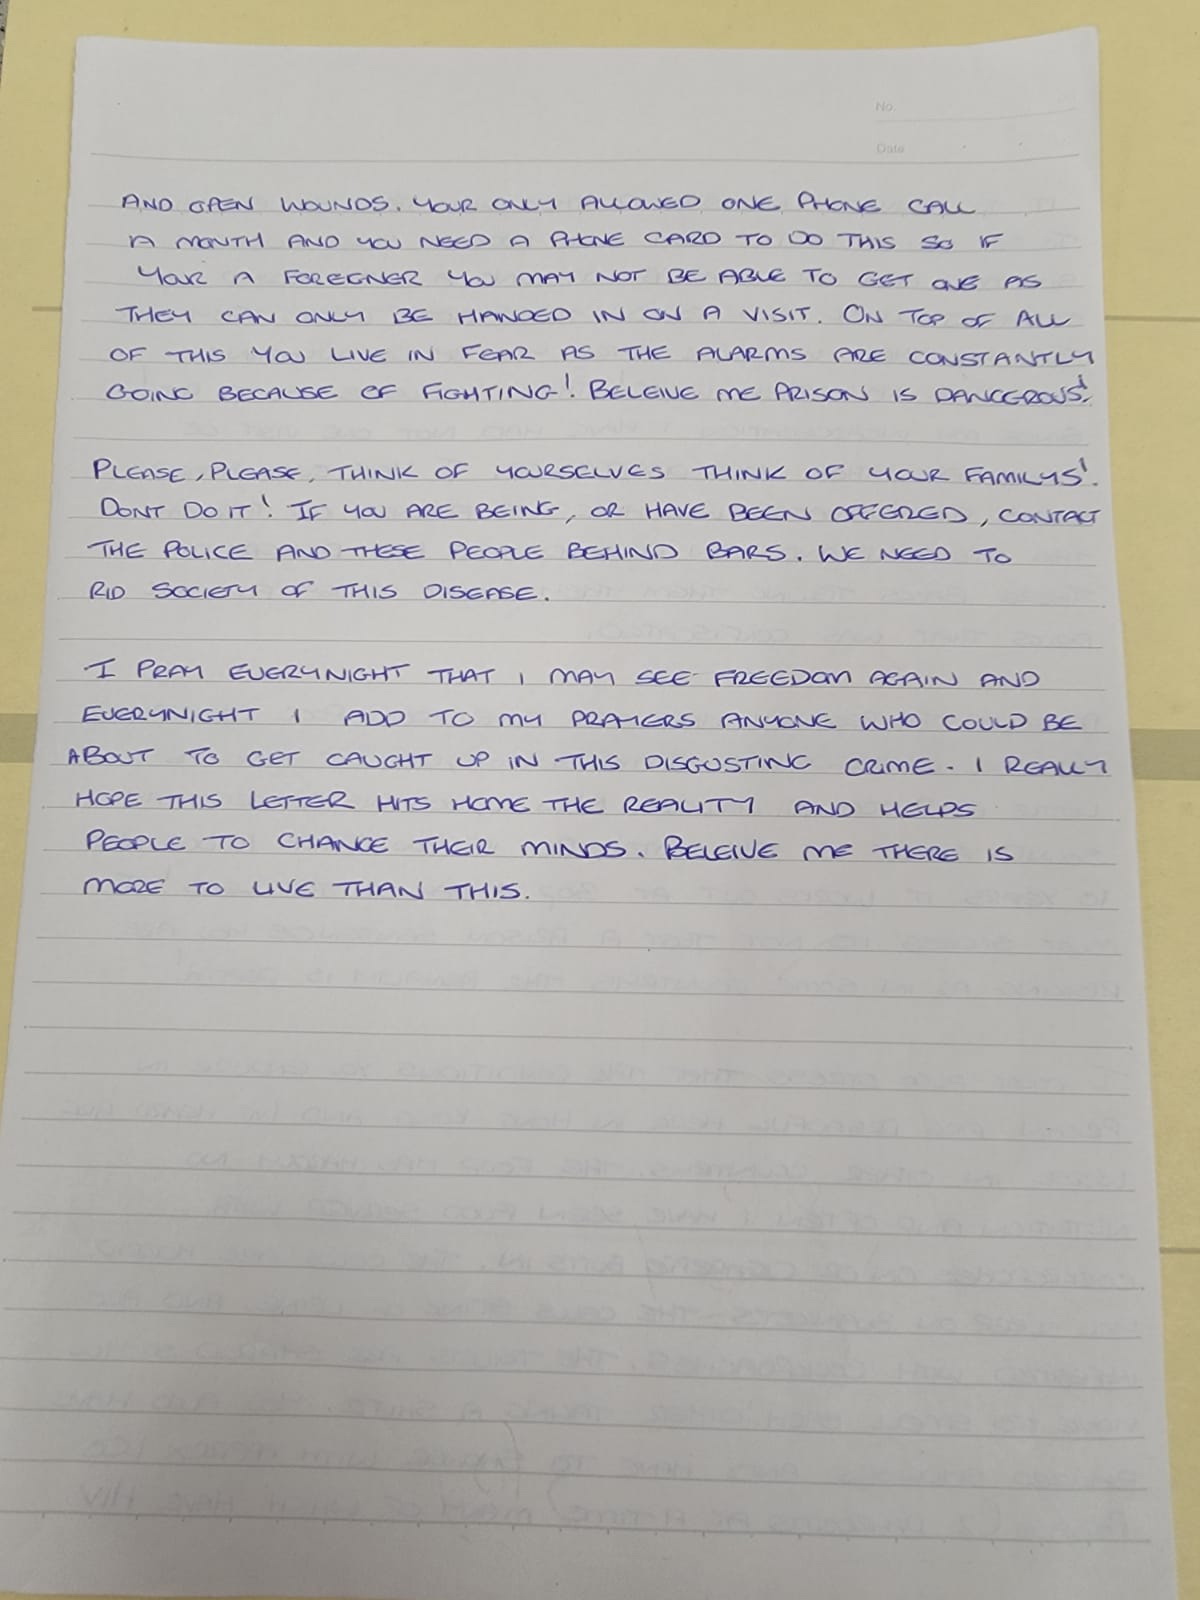 No.
Date
AND OPEN WOUNDS. YOUR ONLY ALLOWED ONE PHONE CALL
A MONTH AND YOU NEED A PHONE CARD TO DO THIS SO IF
YOUR A FOREGNER YOU MAY NOT BE ABLE TO GET ONE AS
THEY CAN ONLY BE HANDED IN ON A VISIT. ON TOP OF ALL
OF THIS YOU LIVE IN FEAR AS THE ALARMS ARE CONSTANTLY
GOING BECAUSE OF FIGHTING! BELEIVE ME PRISON IS DANGEROUS!
PLEASE, PLEASE, THINK OF YOURSELVES THINK OF YOUR FAMILYS!
DONT DO IT! IF YOU ARE BEING, OR HAVE BEEN OFFERED, CONTACT
THE POLICE AND THESE PEOPLE BEHIND BARS. WE NEED TO
RID SOCIETY OF THIS DISEASE.
I PRAY EVERYNIGHT THAT I MAY SEE FREEDOM AGAIN AND
EVERYNIGHT I ADD TO MY PRAYERS ANYONE WHO COULD BE
ABOUT TO GET CAUGHT UP IN THIS DISGUSTING CRIME. I REALLY
HOPE THIS LETTER HITS HOME THE REALITY AND HELPS
PEOPLE TO CHANGE THEIR MINDS. BELEIVE ME THERE IS
MORE TO LIVE THAN THIS.